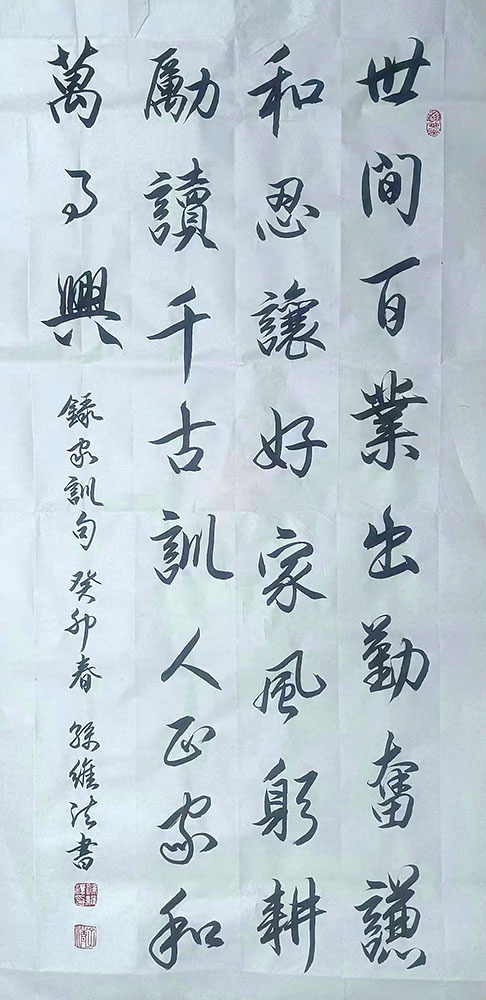 世间百業出勤奮謙
和忍讓好家風躬耕
勵讀千古訓人正家和
萬事興
錄家訓句 癸卯春 孫維法書